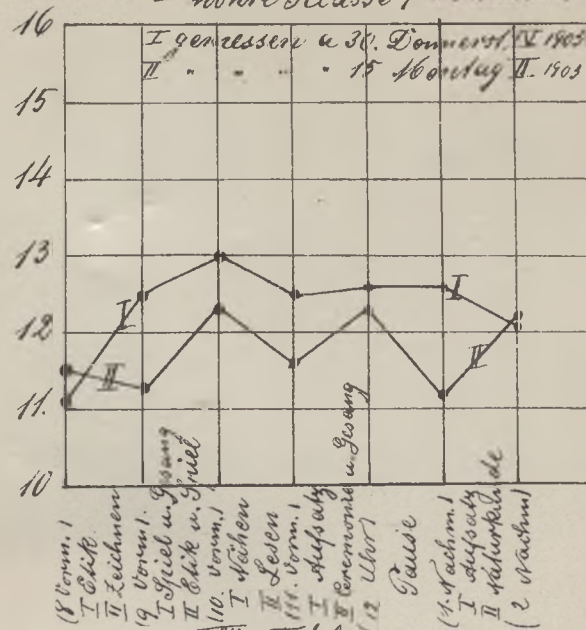 höhre Klasse,
16
I gemessen u 30. Donnerst. IV 1903
II " " " " 15 Montag II. 1903
15
14
13
12
11.
10
I
II
I
II
(8 Vorm.)
I Etik.
II Zeichnen
(9 Vorm.)
I Spiel u. Gesang
II Etik u. Spiel
(10. Vorm.)
I Nähen
II Lesen
(11. Vorm.)
I Aufsatz
II Ceremonie u. Gesang
(12 Uhr)
Pause
(1. Nachm.)
I Aufsatz
II Naturkunde
(2 Nachm)